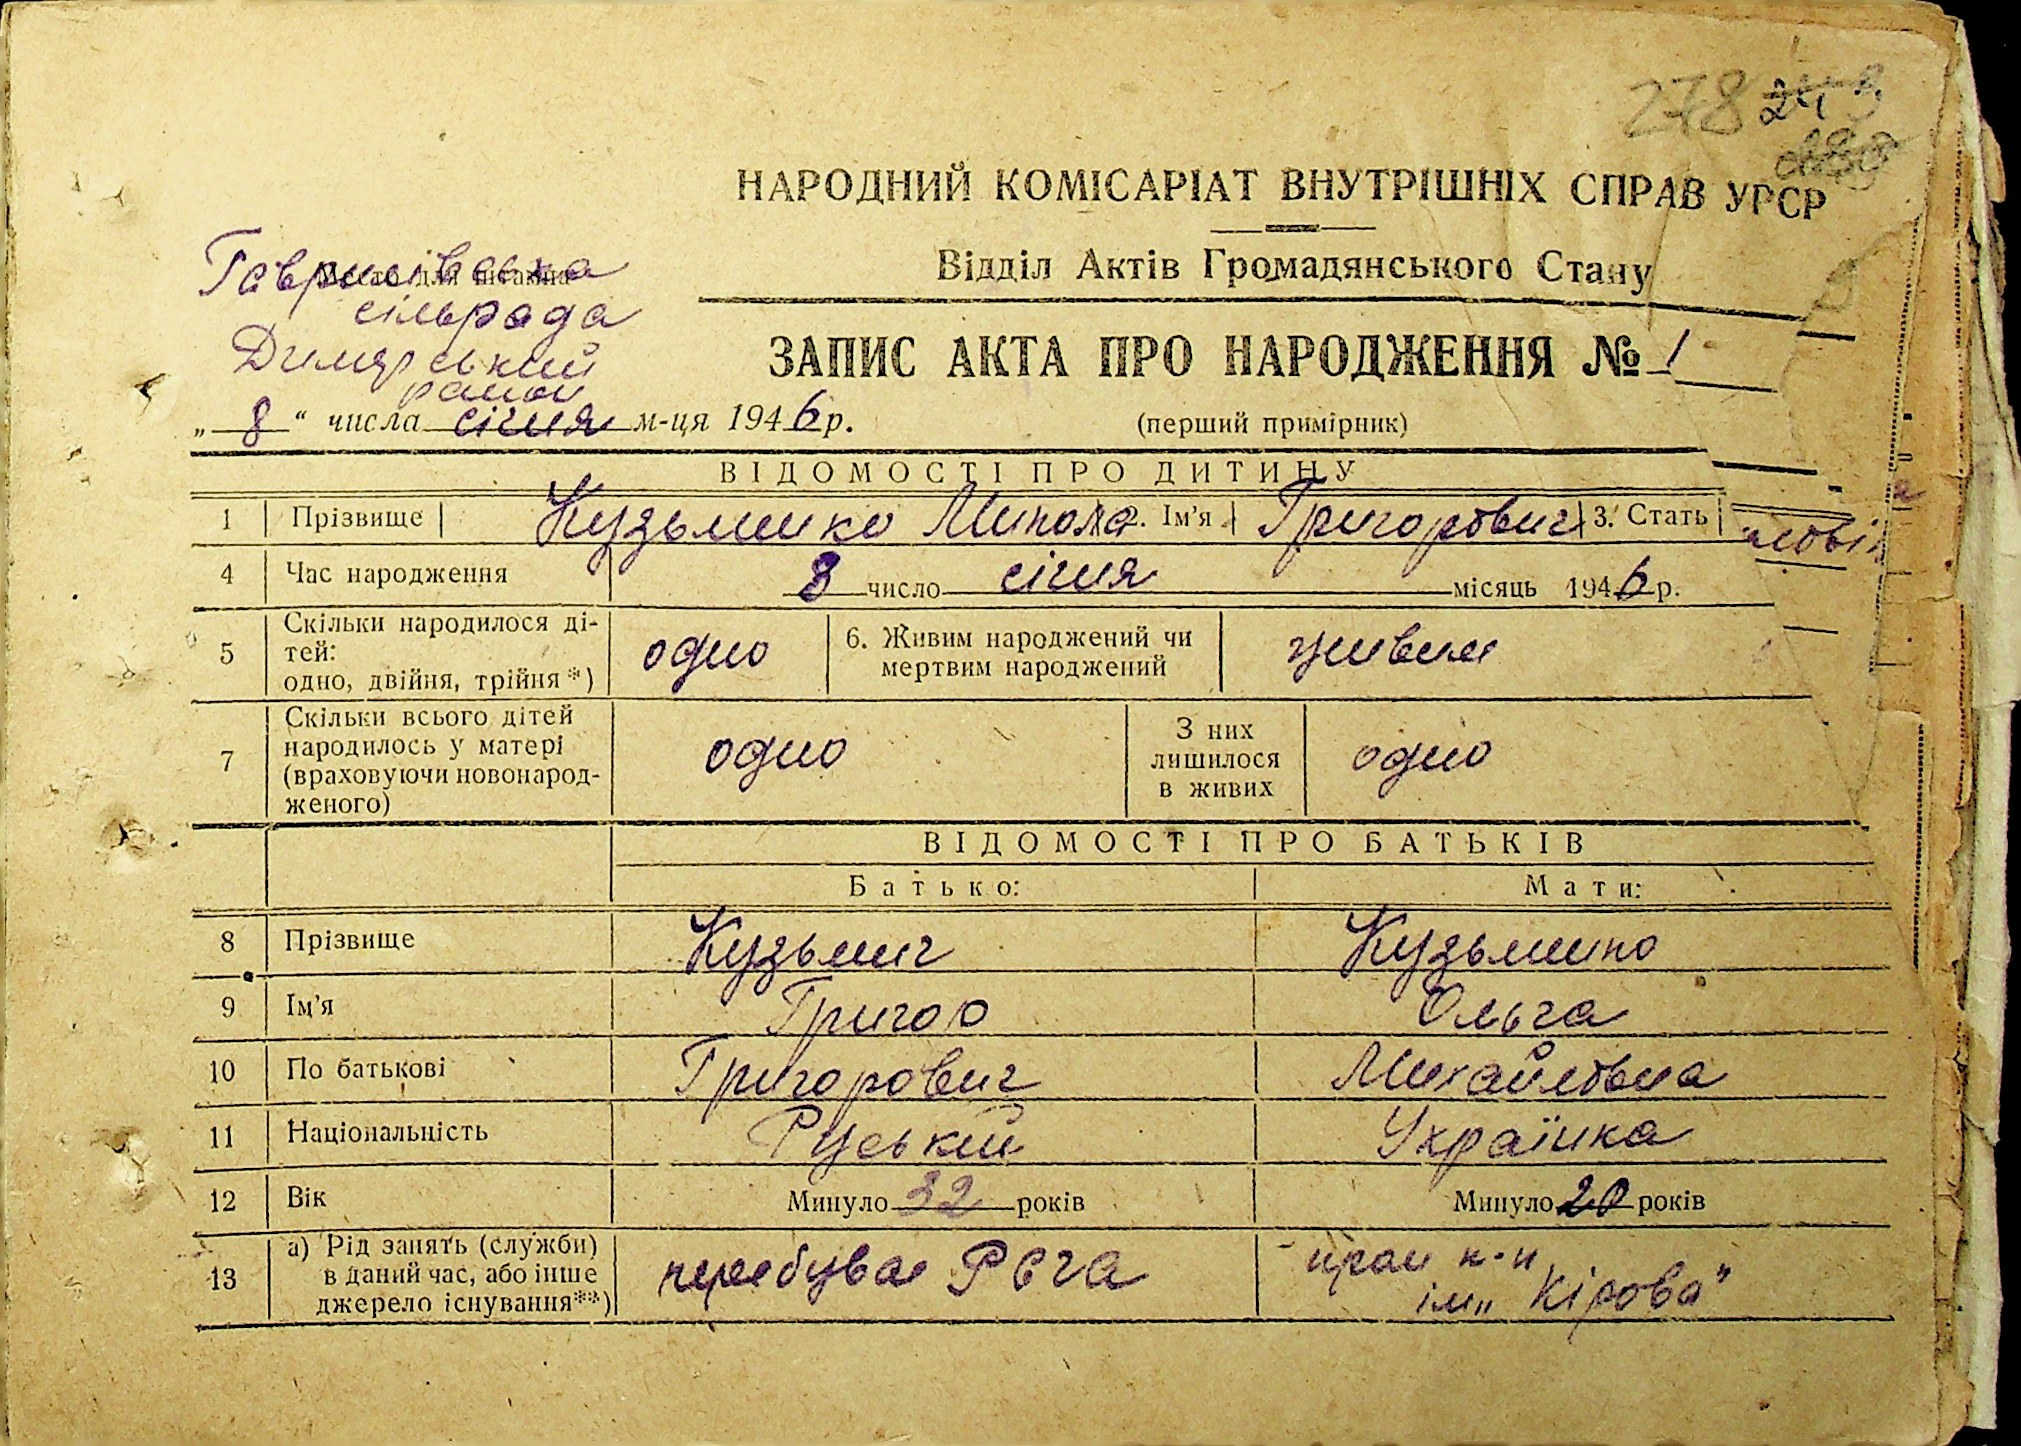 278 243
НАРОДНИЙ КОМІСАРІАТ ВНУТРІШНІХ СПРАВ УРСР
Відділ Актів Громадянського Стану
Гаврилівська
Место для штампа
сільрада
Димерський
район
ЗАПИС АКТА ПРО НАРОДЖЕННЯ № 1
„ 8 “ числа січня м-ця 1946 р.
(перший примірник)
ВІДОМОСТІ ПРО ДИТИНУ
1 Прізвище Кузьменко Микола 2. Ім'я Григорович 3. Стать
4 Час народження 8 число січня місяць 1946 р.
5 Скільки народилося ді-
тей:
одно, двійня, трійня *)
одно
6. Живим народжений чи
мертвим народжений
живим
7 Скільки всього дітей
народилось у матері
(враховуючи новонарод-
женого)
одно
З них
лишилося
в живих
одно
ВІДОМОСТІ ПРО БАТЬКІВ
Батько: Мати:
8 Прізвище Кузьмич Кузьменко
9 Ім'я Григор Ольга
10 По батькові Григорович Михайловна
11 Національність Руський Українка
12 Вік Минуло 32 років Минуло 20 років
13 а) Рід занять (служби)
в даний час, або інше
джерело існування**)
перебуває РСЧА
ім „Кірова“